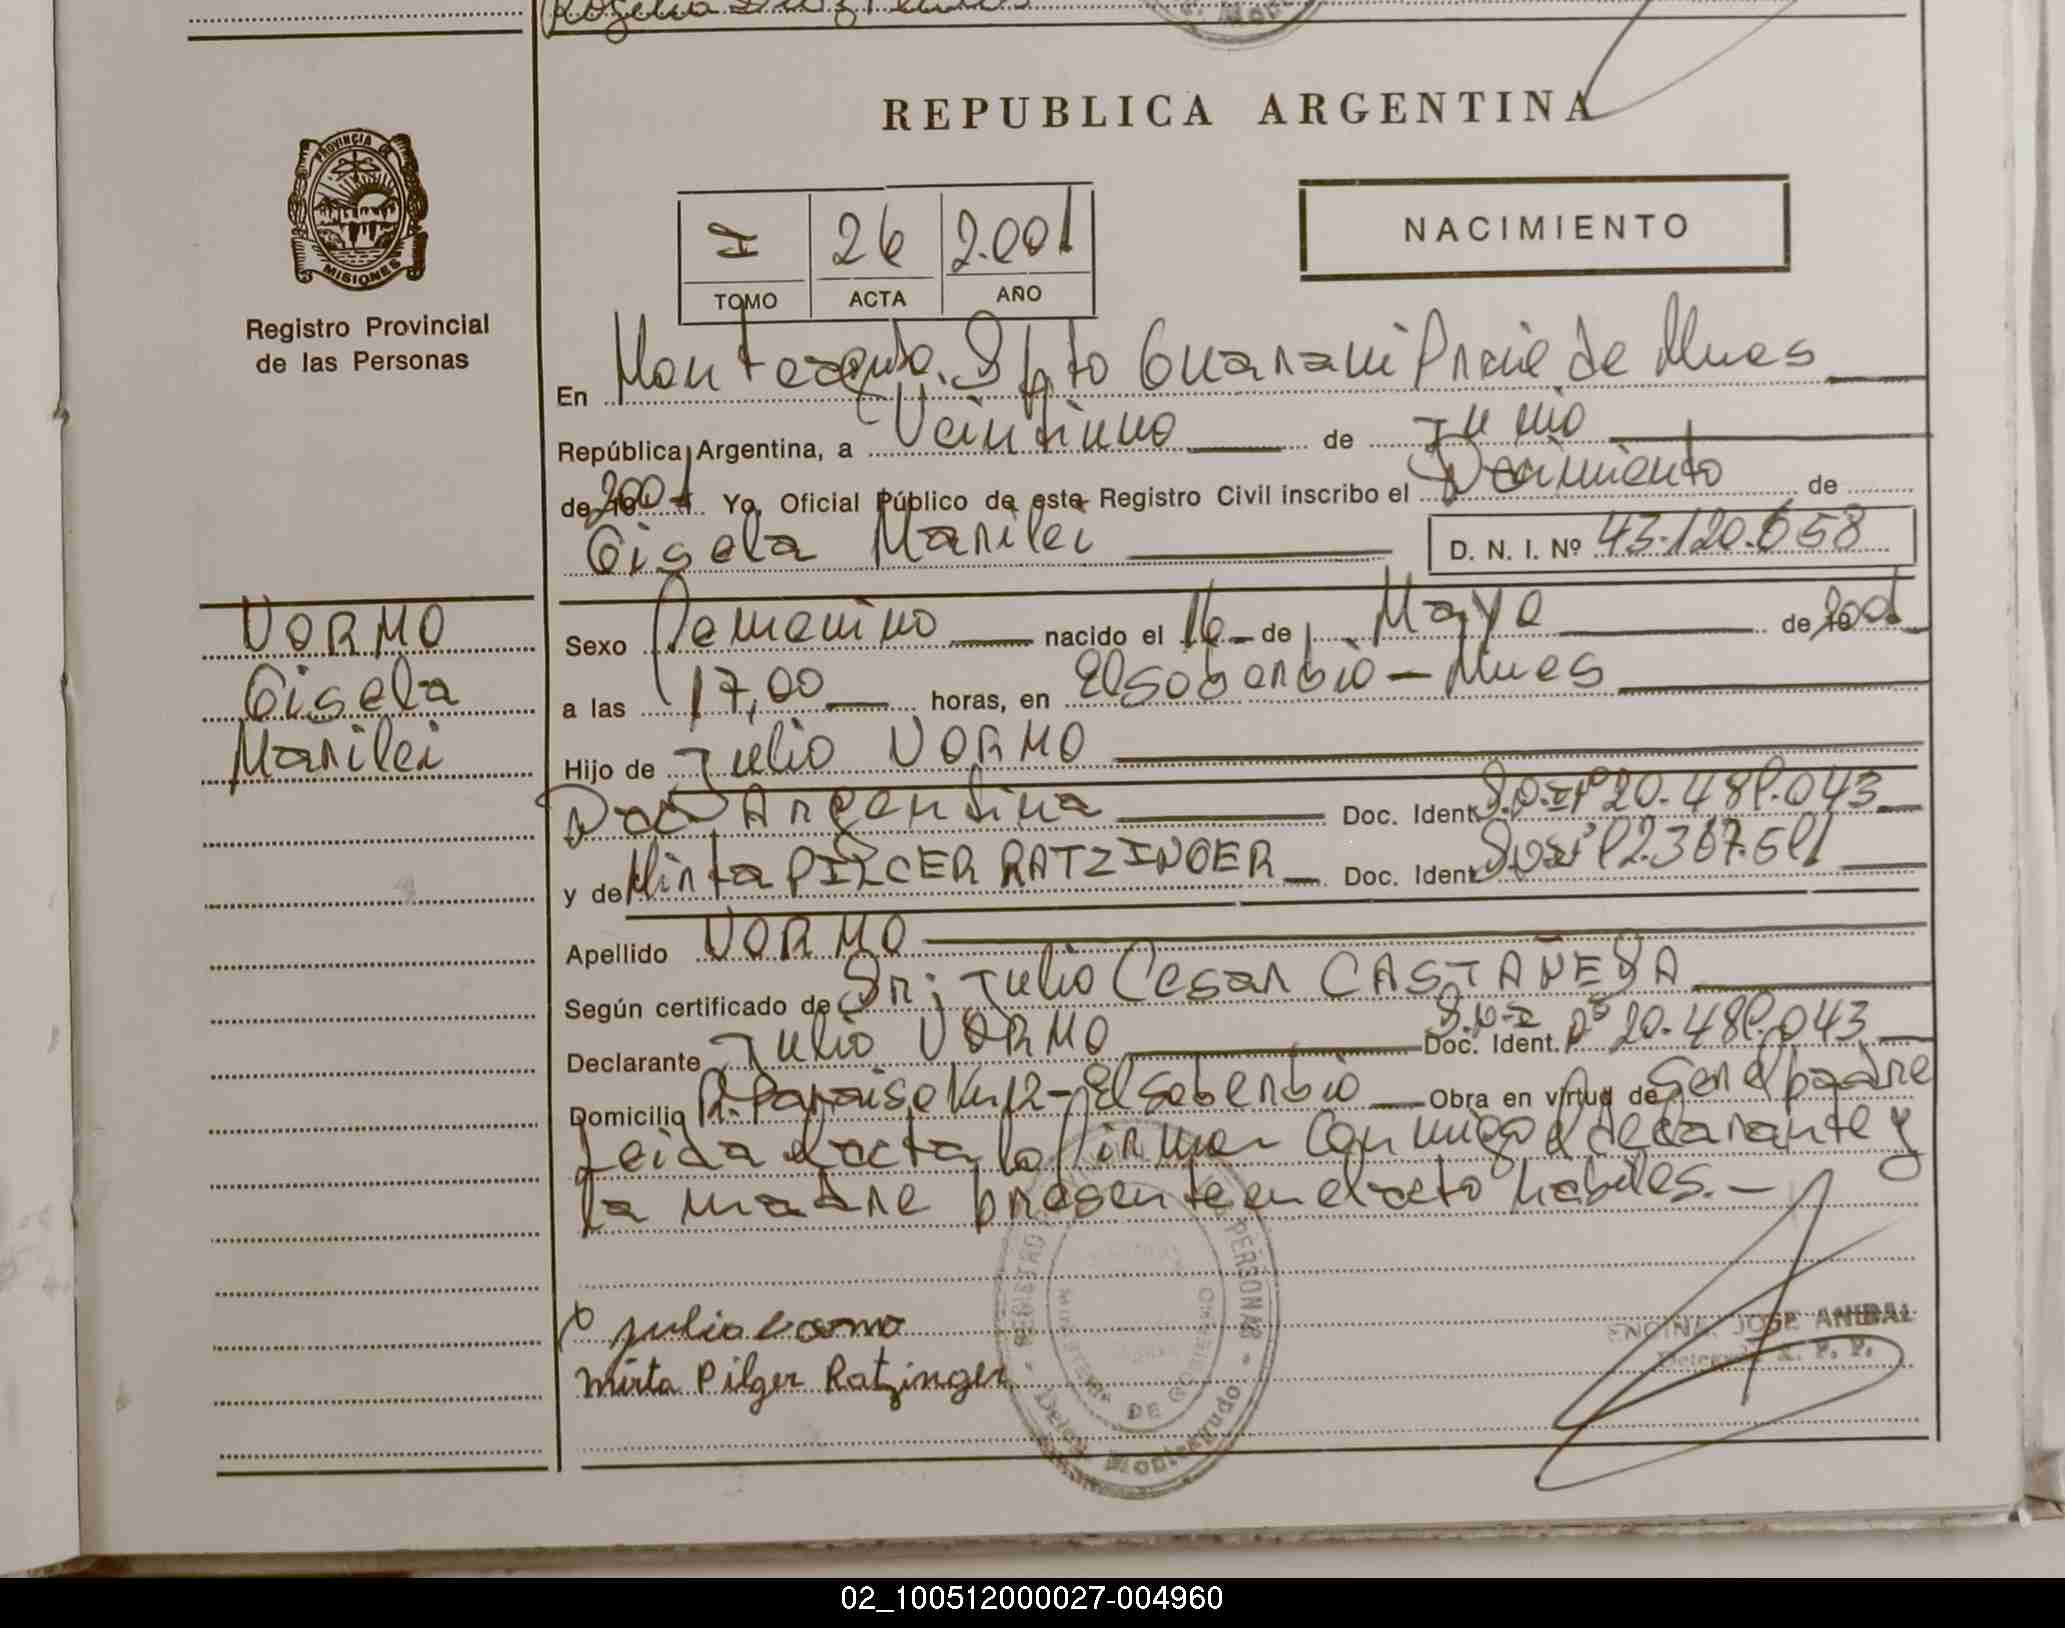 PROVINCIA DE
MISIONES
Registro Provincial
de las Personas
REPUBLICA ARGENTINA
I 26 2.001
TOMO ACTA AÑO
NACIMIENTO
En Monteagudo. Dpto Guarani Pncie de Mnes
República Argentina, a Veintiuno de Junio
de 2001 Yo, Oficial Público de este Registro Civil inscribo el Nacimiento de
Gisela Marilei D. N. I. Nº 43.120.658
VORMO
Gisela
Marilei
Sexo Femenino nacido el 16 de Mayo de 2001
a las 17,00 horas, en El Soberbio - Mnes
Hijo de Julio VORMO
Nac Argentina Doc. Ident. D.N.I Nº 20.481.043
y de Mirta PILGER RATZINGER Doc. Ident.
Apellido VORMO
Según certificado de Dr: Julio Cesar CASTAÑEDA
Declarante Julio VORMO Doc. Ident. D.N.I Nº 20.481.043
Domicilio P. Paraiso Km 12 - El Soberbio Obra en virtud de Ser el padre
Leida el acta la firman conmigo el declarante y
la madre presente en el acto habiles. -
julio vormo
Mirta Pilger Ratzinger
REGISTRO PERSONAS
MINISTERIO DE GOBIERNO
Deleg. Monteagudo
ENCINA, JOSE ANIBAL
Delegado R. P. P.
02_100512000027-004960